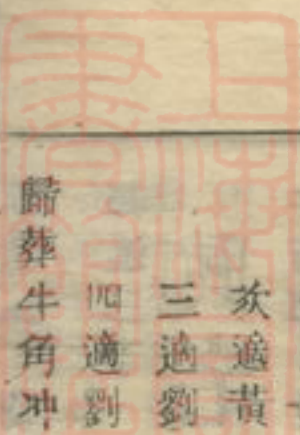 次適黃
三適劉
四適劉
歸葬牛角冲